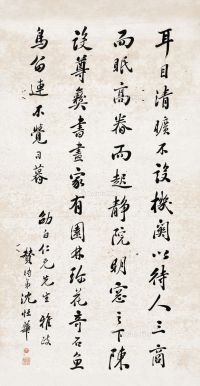 耳目清曠不設機關以待人三商
而眠高舂而起静院明窓之下陳
設尊彝書畫家有園林珍花奇石魚
鳥留連不覺日暮
仁兄先生雅政
弟沈